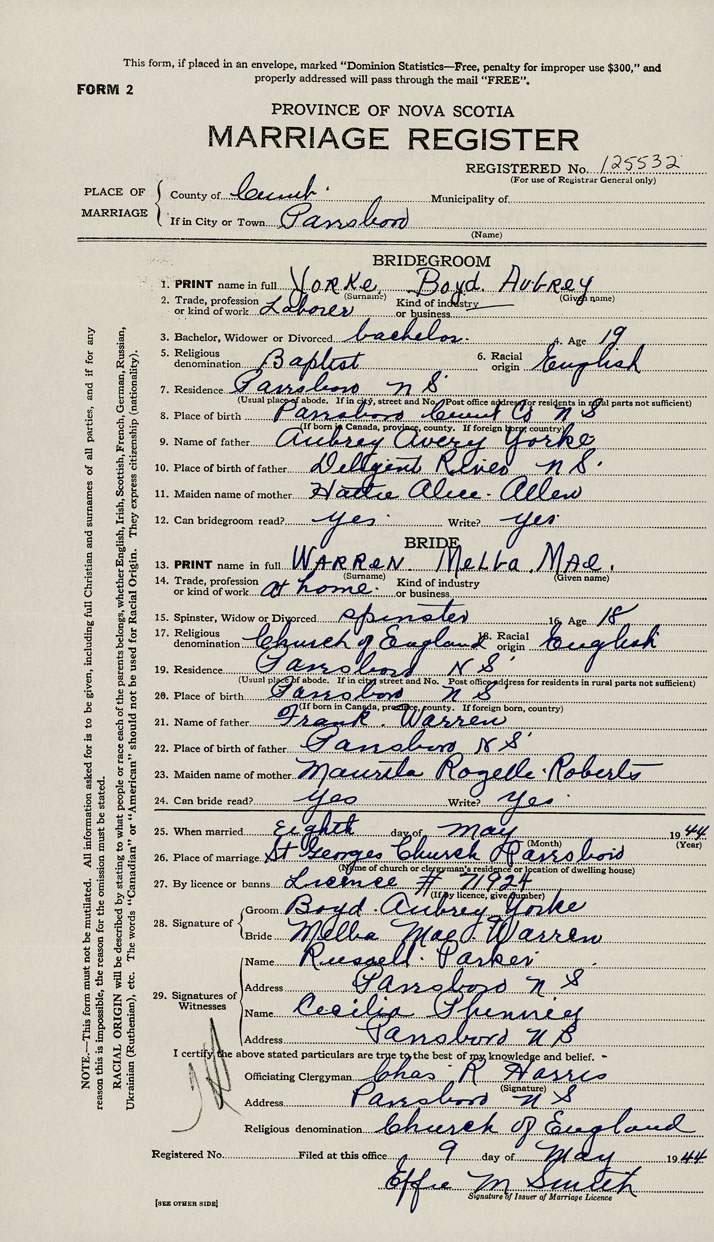 This form, if placed in an envelope, marked "Dominion Statistics—Free, penalty for improper use $300," and
properly addressed will pass through the mail "FREE".
FORM 2
PROVINCE OF NOVA SCOTIA
MARRIAGE REGISTER
REGISTERED No. 125532
(For use of Registrar General only)
PLACE OF MARRIAGE
County of Cumb. Municipality of
If in City or Town Parrsboro
(Name)
BRIDEGROOM
1. PRINT name in full Yorke, Boyd. Aubrey
(Surname) (Given name)
2. Trade, profession or kind of work Laborer Kind of industry or business —
3. Bachelor, Widower or Divorced bachelor. 4. Age 19
5. Religious denomination Baptist 6. Racial origin English
7. Residence Parrsboro N S
(Usual place of abode. If in city, street and No. Post office address for residents in rural parts not sufficient)
8. Place of birth Parrsboro Cumb Co N S
(If born in Canada, province, county. If foreign born, country)
9. Name of father Aubrey Avery Yorke
10. Place of birth of father Diligent River N S.
11. Maiden name of mother Hattie Alice. Allen
12. Can bridegroom read? yes. Write? yes.
BRIDE
13. PRINT name in full WARREN. Melba. Mae.
(Surname) (Given name)
14. Trade, profession or kind of work at home. Kind of industry or business
15. Spinster, Widow or Divorced spinster 16. Age 18
17. Religious denomination Church of England 18. Racial origin English
19. Residence Parrsboro N S
(Usual place of abode. If in city street and No. Post office address for residents in rural parts not sufficient)
20. Place of birth Parrsboro N S
(If born in Canada, province, county. If foreign born, country)
21. Name of father Frank. Warren
22. Place of birth of father Parrsboro N S
23. Maiden name of mother Roberts
24. Can bride read? yes Write? yes.
25. When married Eighth day of May 1944
(Month) (Year)
26. Place of marriage St Georges Church Parrsboro
(Name of church or clergyman's residence or location of dwelling house)
27. By licence or banns Licence # 71924
(If by licence, give number)
28. Signature of
Groom Boyd. Aubrey Yorke
Bride Melba Mae Warren
29. Signatures of Witnesses
Name Russell. Parker
Address Parrsboro N S
Name Cecilia
Address Parrsboro N S
I certify the above stated particulars are true to the best of my knowledge and belief.
Officiating Clergyman Chas. R Harris
(Signature)
Address Parrsboro N S
Religious denomination Church of England
Registered No. Filed at this office 9 day of May 1944
Effie M Smith
Signature of Issuer of Marriage Licence
[SEE OTHER SIDE]
NOTE.—This form must not be mutilated. All information asked for is to be given, including full Christian and surnames of all parties, and if for any
reason this is impossible, the reason for the omission must be stated.
RACIAL ORIGIN will be described by stating to what people or race each of the parents belongs, whether English, Irish, Scottish, French, German, Russian,
Ukrainian (Ruthenian), etc. The words "Canadian" or "American" should not be used for Racial Origin. They express citizenship (nationality).